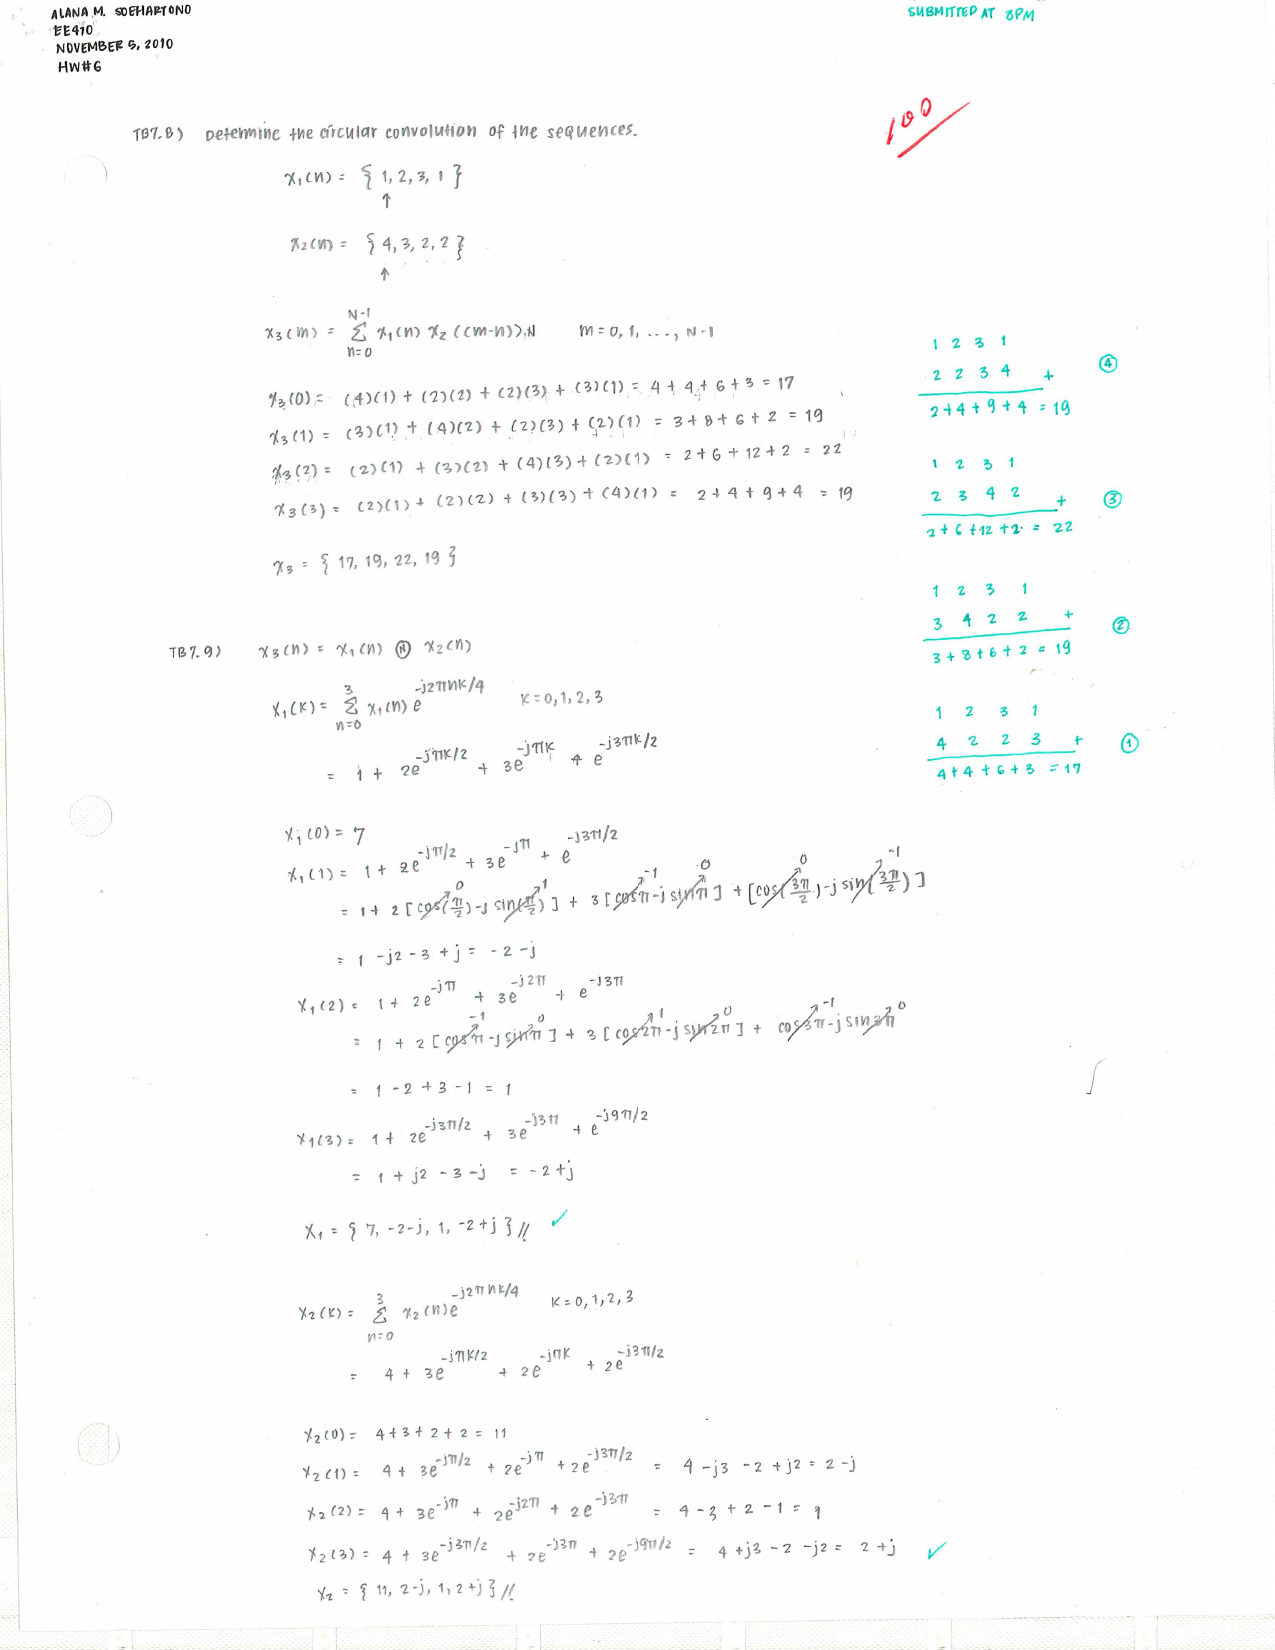 ALANA M. SOEHARTONO
EE410
NOVEMBER 5, 2010
HW#6
SUBMITTED AT 3PM
100
TB7.8) Determine the circular convolution of the sequences.
x₁(n) = { 1, 2, 3, 1 }
↑
x₂(n) = { 4, 3, 2, 2 }
↑
x₃(m) = Σ_{n=0}^{N-1} x₁(n) x₂((m-n))N m = 0, 1, ..., N-1
x₃(0) = (4)(1) + (2)(2) + (2)(3) + (3)(1) = 4 + 4 + 6 + 3 = 17
x₃(1) = (3)(1) + (4)(2) + (2)(3) + (2)(1) = 3 + 8 + 6 + 2 = 19
x₃(2) = (2)(1) + (3)(2) + (4)(3) + (2)(1) = 2 + 6 + 12 + 2 = 22
x₃(3) = (2)(1) + (2)(2) + (3)(3) + (4)(1) = 2 + 4 + 9 + 4 = 19
x₃ = { 17, 19, 22, 19 }
1 2 3 1
2 2 3 4 + ④
2+4+9+4 = 19
1 2 3 1
2 3 4 2 + ③
2+6+12+2 = 22
1 2 3 1
3 4 2 2 + ②
3+8+6+2 = 19
1 2 3 1
4 2 2 3 + ①
4+4+6+3 = 17
TB7.9) x₃(n) = x₁(n) Ⓝ x₂(n)
X₁(K) = Σ_{n=0}^{3} x₁(n) e^{-j2πnK/4} K = 0,1,2,3
= 1 + 2e^{-jπK/2} + 3e^{-jπK} + e^{-j3πK/2}
X₁(0) = 7
X₁(1) = 1 + 2e^{-jπ/2} + 3e^{-jπ} + e^{-j3π/2}
0 1 -1 0 0 -1
= 1 + 2 [cos(π/2) - j sin(π/2)] + 3 [cosπ - j sinπ] + [cos(3π/2) - j sin(3π/2)]
= 1 - j2 - 3 + j = -2 - j
X₁(2) = 1 + 2e^{-jπ} + 3e^{-j2π} + e^{-j3π}
-1 0 1 0 -1 0
= 1 + 2 [cosπ - j sinπ] + 3 [cos2π - j sin2π] + cos3π - j sin3π
= 1 - 2 + 3 - 1 = 1
X₁(3) = 1 + 2e^{-j3π/2} + 3e^{-j3π} + e^{-j9π/2}
= 1 + j2 - 3 - j = -2 + j
X₁ = { 7, -2-j, 1, -2+j } // ✓
X₂(K) = Σ_{n=0}^{3} x₂(n)e^{-j2πnk/4} K = 0,1,2,3
= 4 + 3e^{-jπK/2} + 2e^{-jπK} + 2e^{-j3π/2}
X₂(0) = 4 + 3 + 2 + 2 = 11
X₂(1) = 4 + 3e^{-jπ/2} + 2e^{-jπ} + 2e^{-j3π/2} = 4 - j3 - 2 + j2 = 2 - j
X₂(2) = 4 + 3e^{-jπ} + 2e^{-j2π} + 2e^{-j3π} = 4 - 3 + 2 - 1 = 1
X₂(3) = 4 + 3e^{-j3π/2} + 2e^{-j3π} + 2e^{-j9π/2} = 4 + j3 - 2 - j2 = 2 + j ✓
X₂ = { 11, 2-j, 1, 2+j } //